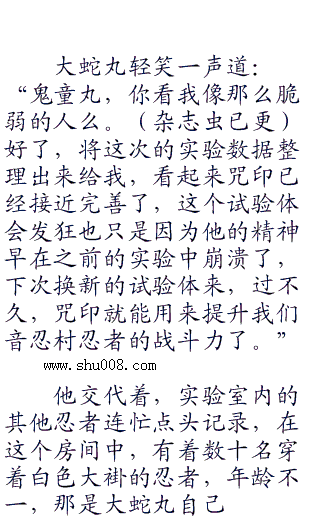 大蛇丸轻笑一声道：
“鬼童丸，你看我像那么脆
弱的人么。（杂志虫已更）
好了，将这次的实验数据整
理出来给我，看起来咒印已
经接近完善了，这个试验体
会发狂也只是因为他的精神
早在之前的实验中崩溃了，
下次换新的试验体来，过不
久，咒印就能用来提升我们
音忍村忍者的战斗力了。”
www.shu008.com
他交代着，实验室内的
其他忍者连忙点头记录，在
这个房间中，有着数十名穿
着白色大褂的忍者，年龄不
一，那是大蛇丸自己